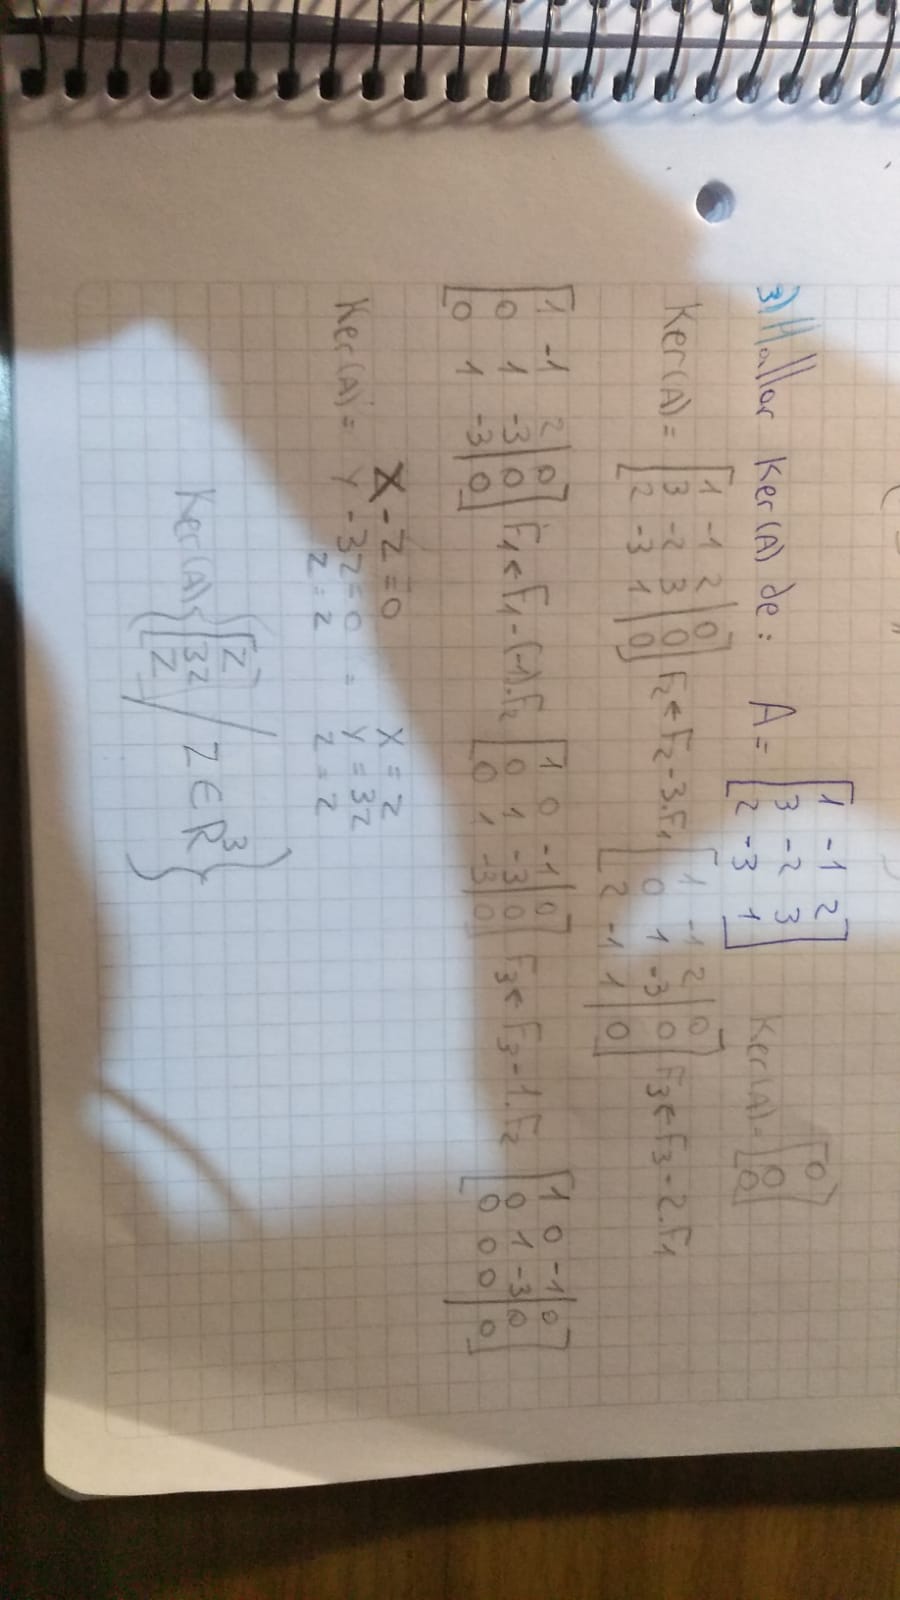 3) Hallar Ker(A) de: A = [1 -1 2; 3 -2 3; 2 -3 1] Ker(A) = [0; 0; 0]
Ker(A) = [1 -1 2 | 0; 3 -2 3 | 0; 2 -3 1 | 0] F2 ← F2 - 3.F1 [1 -1 2 | 0; 0 1 -3 | 0; 2 -1 1 | 0] F3 ← F3 - 2.F1
[1 -1 2 | 0; 0 1 -3 | 0; 0 1 -3 | 0] F1 ← F1 - (-1).F2 [1 0 -1 | 0; 0 1 -3 | 0; 0 1 -3 | 0] F3 ← F3 - 1.F2 [1 0 -1 | 0; 0 1 -3 | 0; 0 0 0 | 0]
X - Z = 0 X = Z
Ker(A) = Y - 3Z = 0 = Y = 3Z
Z = Z Z = Z
Ker(A) {[Z; 3Z; Z] / Z ∈ R³}